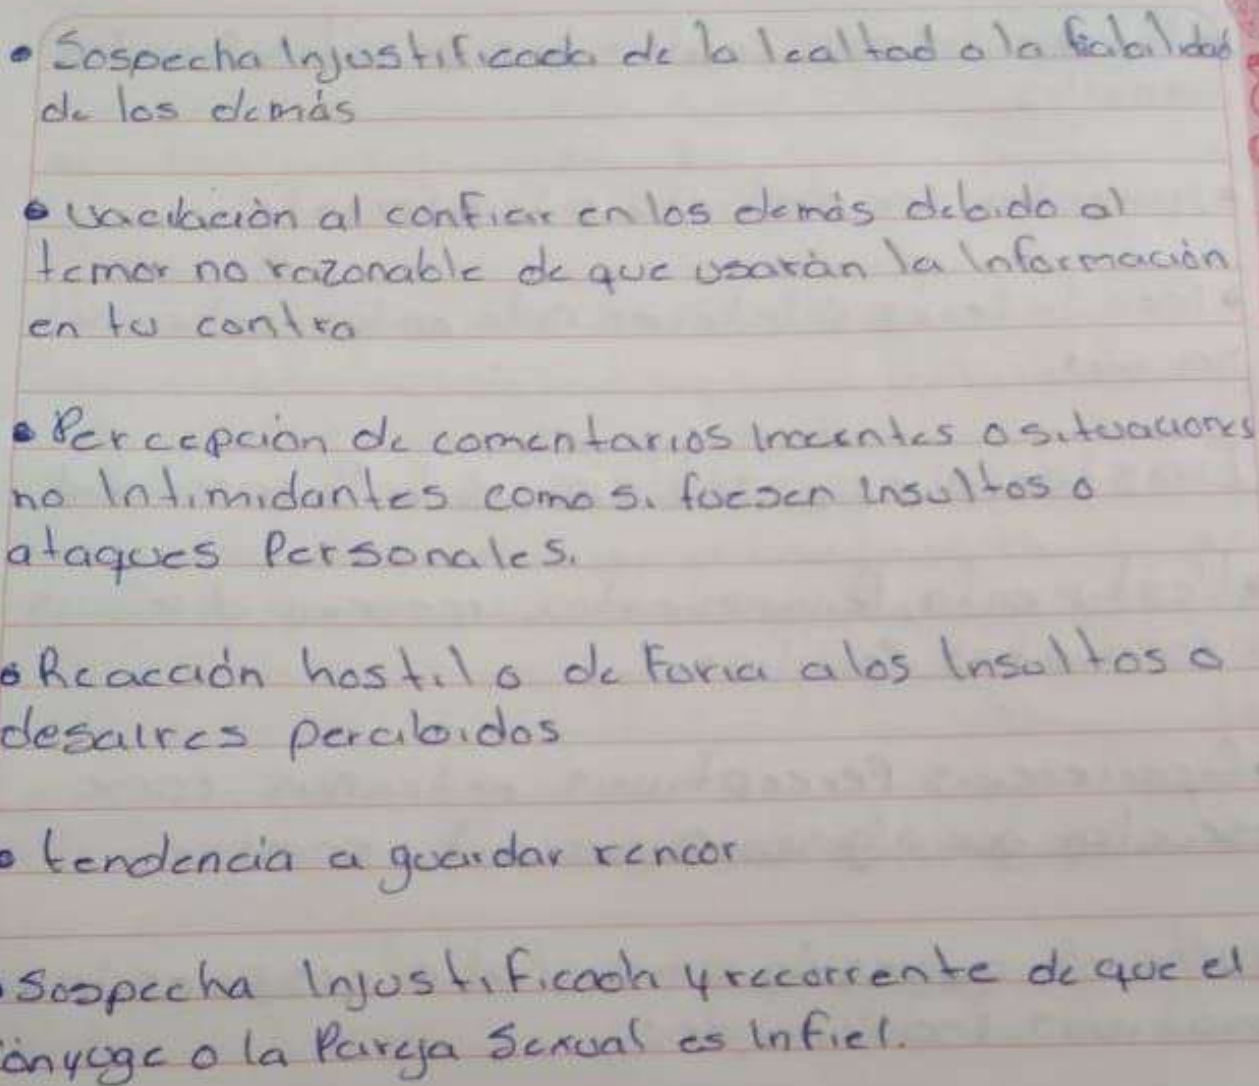 • Sospecha Injustificada de la lealtad o la fiabilidad
de los demás
• Vacilación al confiar en los demás debido al
temor no razonable de que usarán la Información
en tu contra
• Percepción de comentarios inocentes o situaciones
no Intimidantes como si fuesen insultos o
ataques Personales.
• Reacción hostil o de Furia a los Insultos o
desaires percibidos
• tendencia a guardar rencor
• Sospecha Injustificada y recorrente de que el
ónyuge o la Pareja Sexual es Infiel.